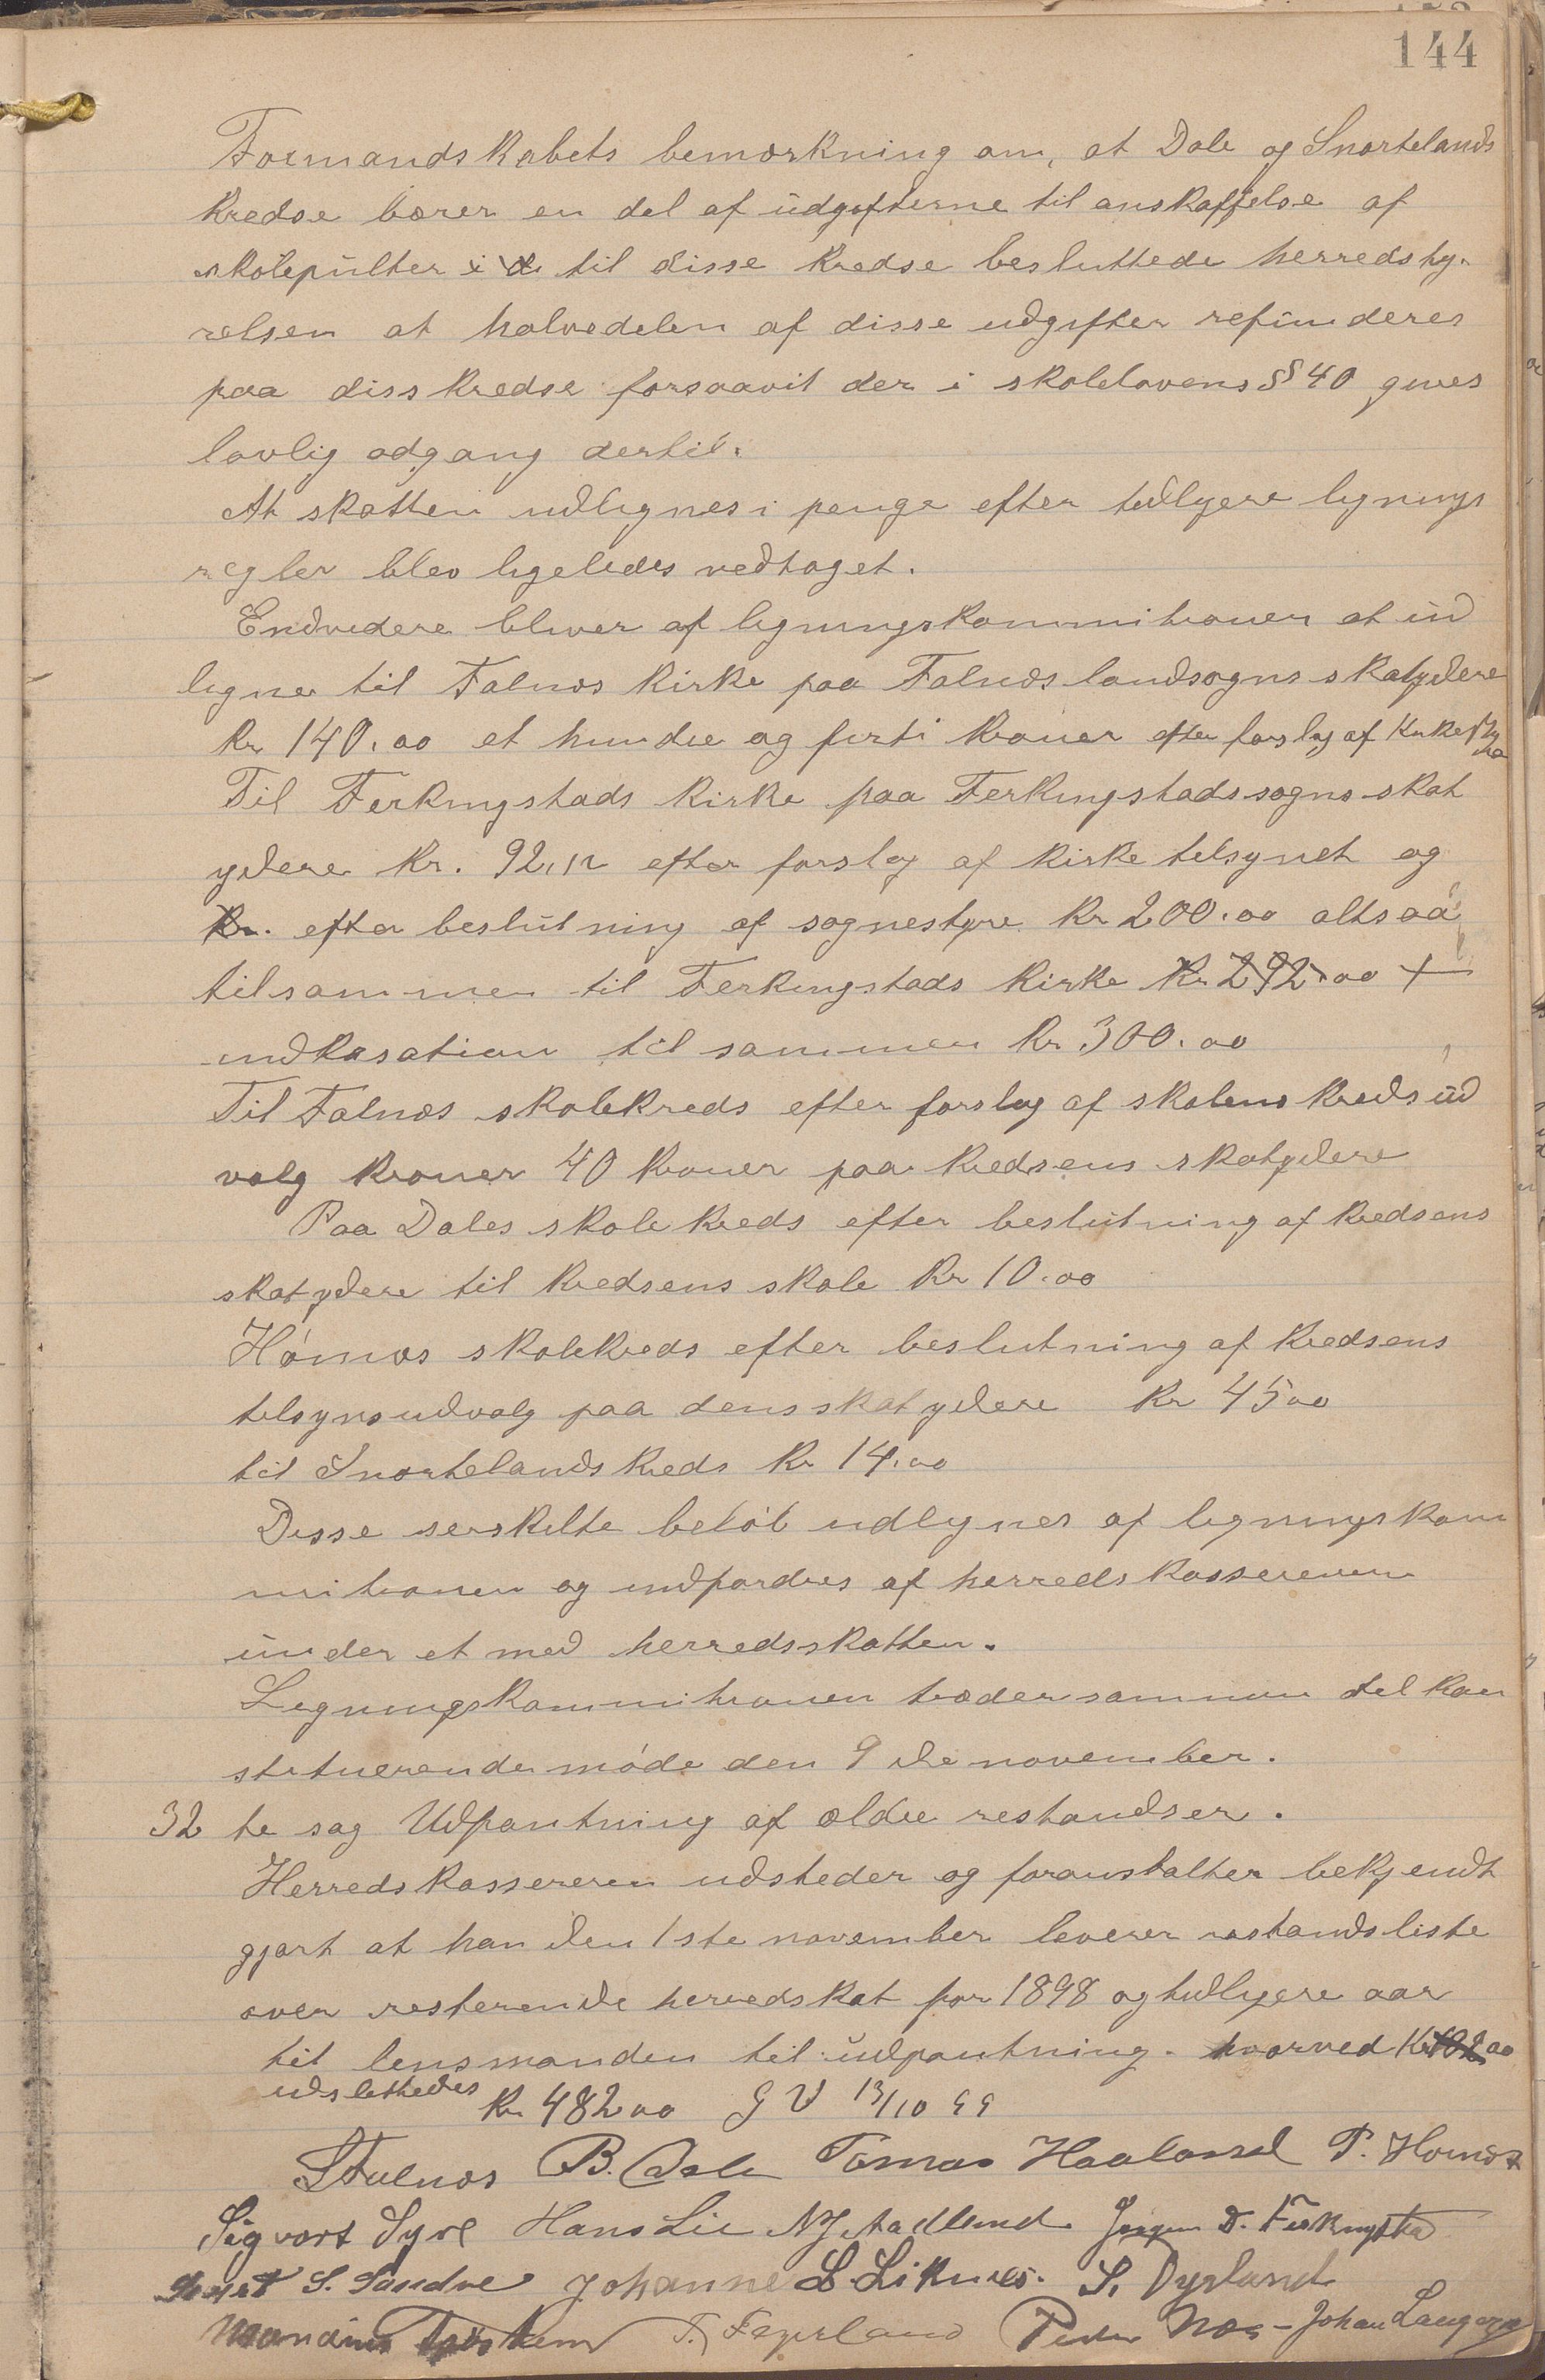 144
Formandskabets bemærkning om, at Dale og Snørtelands
kredse bærer en del af udgifterne til anskaffelse af
skolepulter i d til disse kredse besluttede herredsty-
relsen at halvedelen af disse udgifter refunderes
paa diss kredse forsaavit der i skolelovens § 40 gives
lovlig adgang dertil.
At skatten udlignes i penge efter tidligere lignings
regler blev ligeledes vedtaget.
Endvidere bliver af ligningskommitionen at ud
ligne til Falnæs kirke paa Falnæs landsogns skatydere
Kr 140.00 et hundre og firti kroner efter forslag af
Til Ferkingstads kirke paa Ferkingstadssogns skat
ydere Kr. 92,12 efter forslag af kirketilsynet og
Kr. efter beslutning af sognestyre Kr 200.00 altsaa
tilsammen til Ferkingstads kirke Kr 292.00 +
indkasation til sammen Kr 300.00
Til Falnæs skolekreds efter forslag af skolens kredsud
valg kroner 40 kroner paa kredsens skatydere
Paa Dales skolekreds efter beslutning af kredsens
skatydere til kredsens skole Kr 10.00
Hómæs skolekreds efter beslutning af kredsens
tilsynsudvalg paa dens skatydere Kr 45 00
til Snørtelands kreds Kr 14.00
Disse serskilte beløb udlignes af ligningskom
mitionen og indfordres af herredskassereren
under et med herredsskatten.
Ligningskommitionen træder sammen til kon
stituerende móde den 9de november.
32 te sag Udpantning af ældre restandser.
Herredskassereren udsteder og foranstalter bekjendt
gjort at han den 1ste november leverer restandsliste
over resterende herredskat for 1898 og tidligere aar
til lensmanden til udpantning. hvorved Kr 00
udslettedes Kr 482 00 G V 13/10 99
S Falnæs B. Dale Tómas Haaland P. Homæs
Sigvart Syre Hans Lie N J Stadland Jørgen D.
S. Sandve Johannes L Liknes. S. Dysland
T. Føyrland Peder Næs - Johan